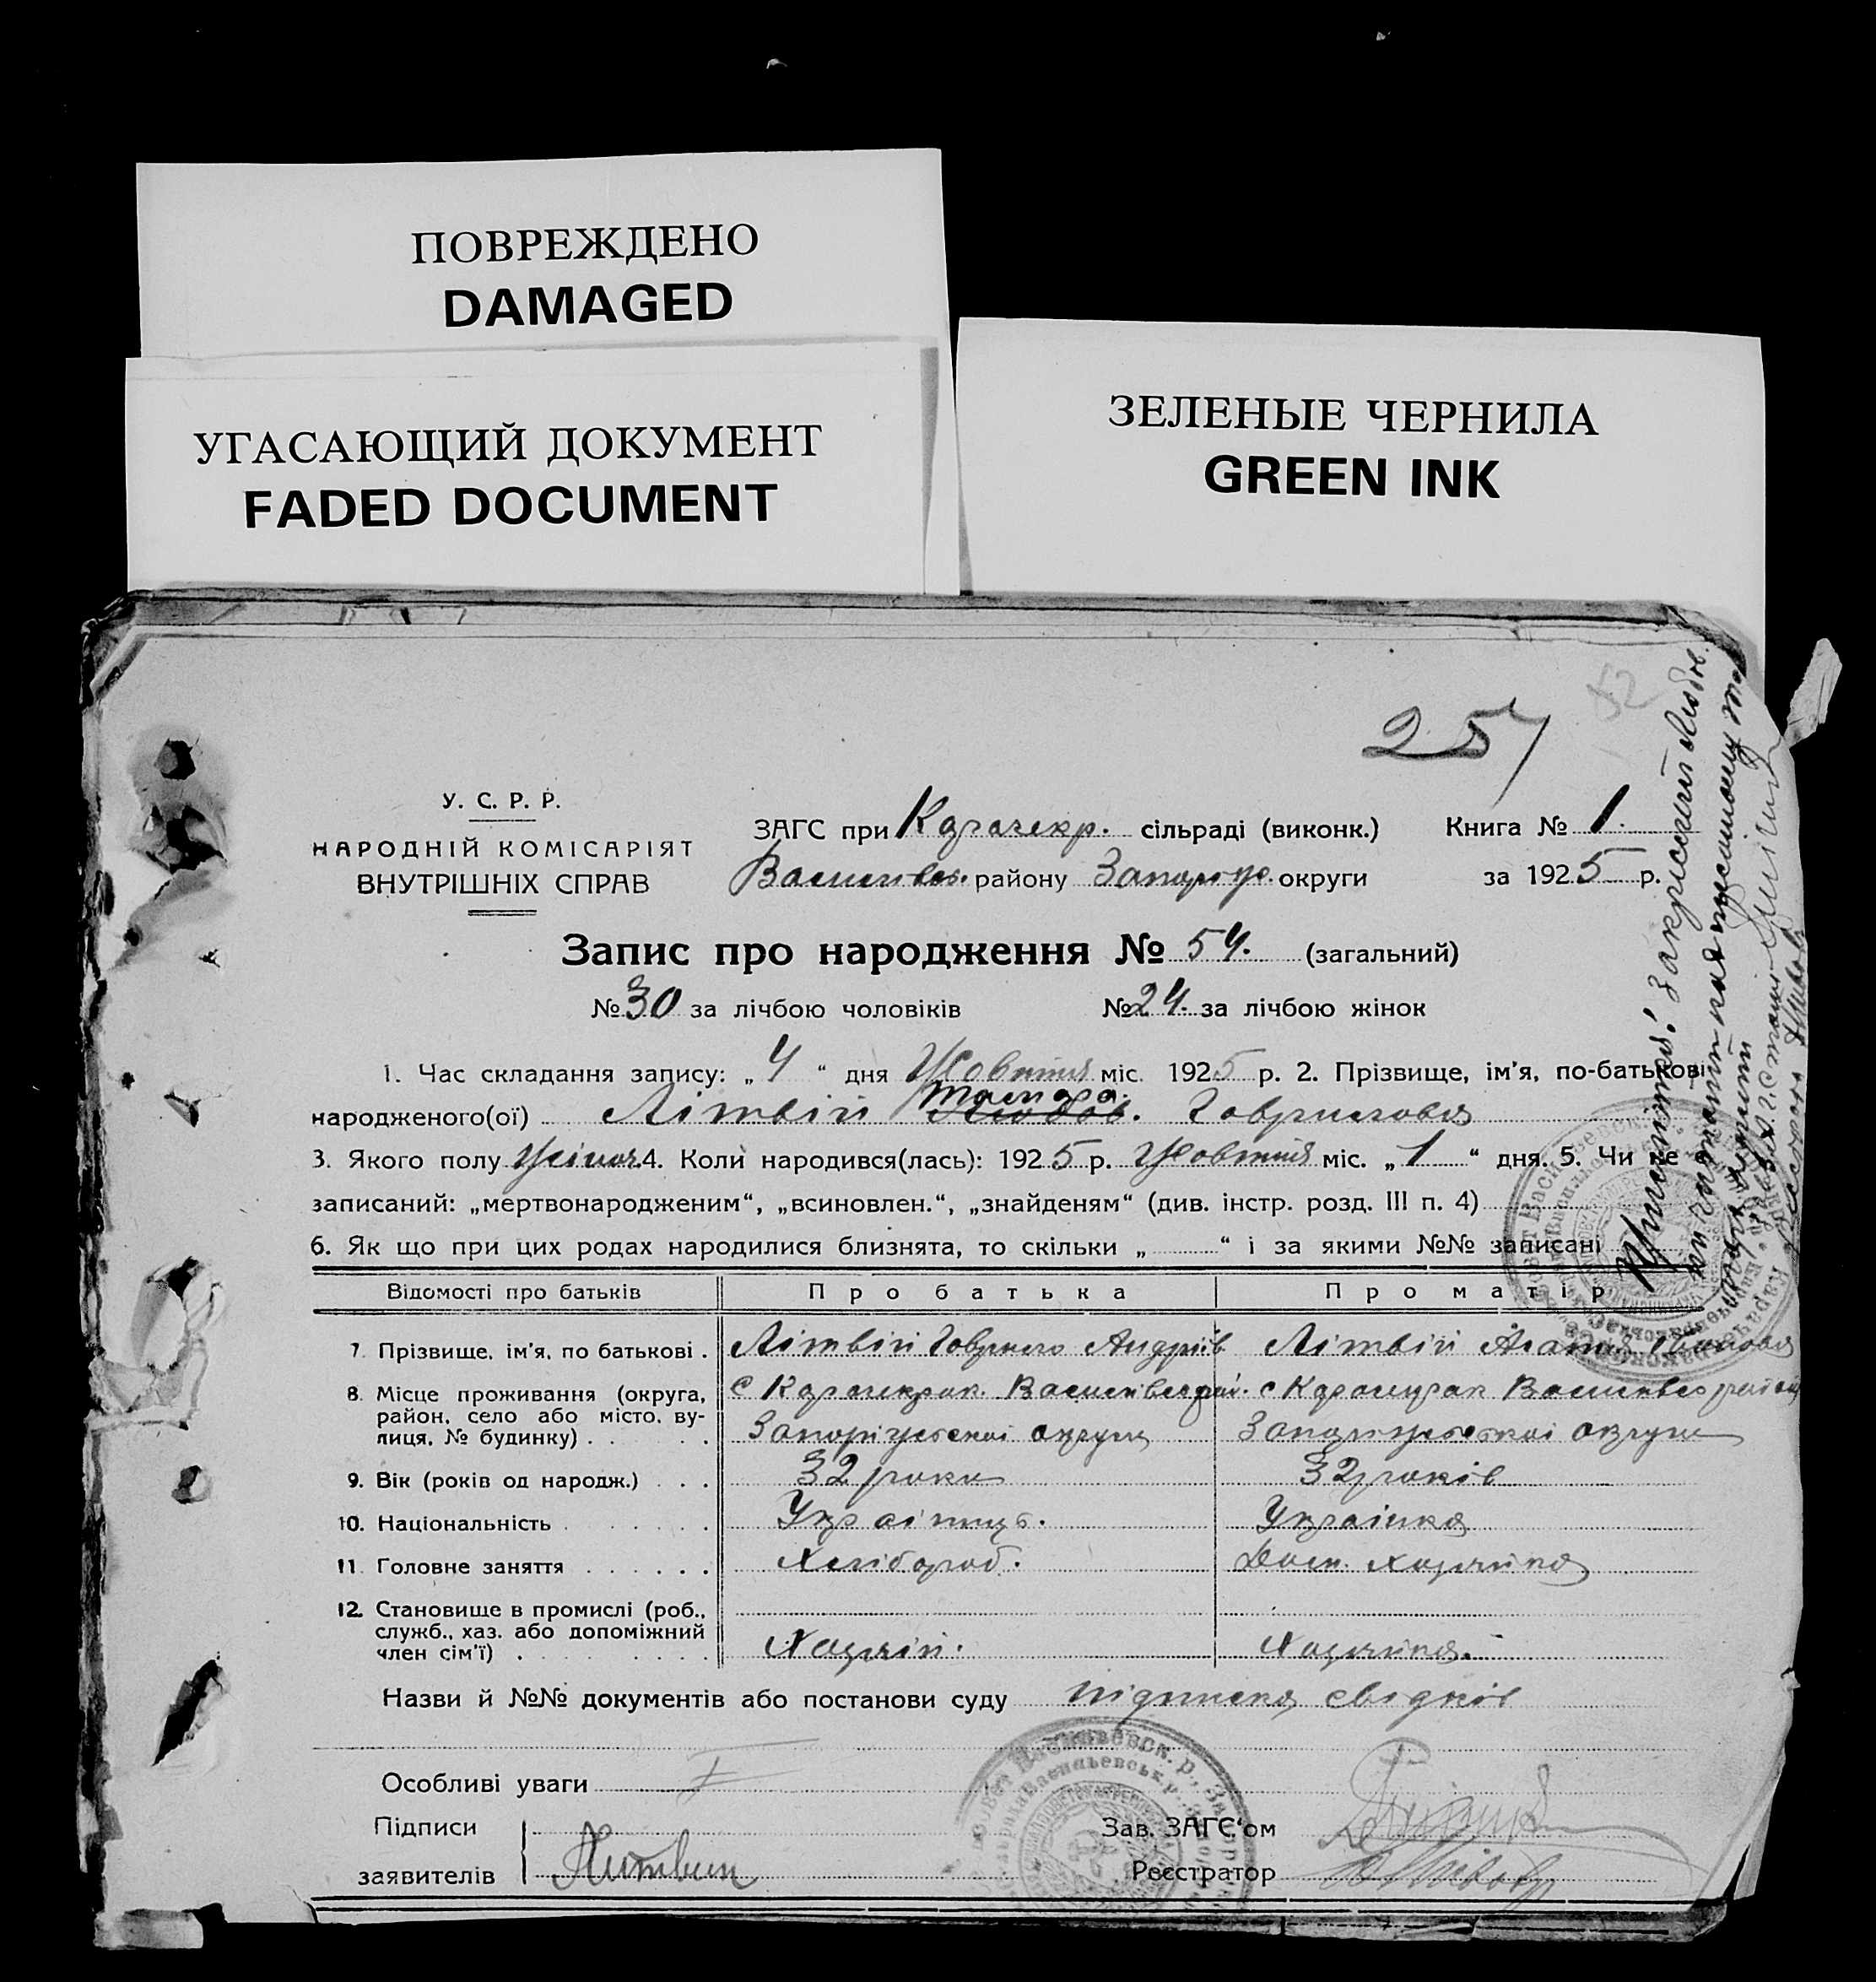 ПОВРЕЖДЕНО
DAMAGED
УГАСАЮЩИЙ ДОКУМЕНТ
FADED DOCUMENT
ЗЕЛЕНЫЕ ЧЕРНИЛА
GREEN INK
52
257
У. С. Р. Р.
НАРОДНІЙ КОМІСАРІЯТ
ВНУТРІШНІХ СПРАВ
ЗАГС при Карачекр. сільраді (виконк.) Книга № 1.
Василівськ. району Запорізь. округи за 1925 р.
Запис про народження № 54. (загальний)
№ 30 за лічбою чоловіків № 24. за лічбою жінок
1. Час складання запису: „4“ дня Жовтня міс. 1925 р. 2. Прізвище, ім'я, по-батькові
Тамара.
народженого(ої) Літвін Любов. Гаврилова
3. Якого полу жіноч. 4. Коли народився(лась): 1925 р. Жовтня міс. „1“ дня. 5. Чи не є
записаний: „мертвонародженим“, „всиновлен.“, „знайденям“ (див. інстр. розд. III п. 4)
6. Як що при цих родах народилися близнята, то скільки „ “ і за якими №№ записані
Відомості про батьків Про батька Про матір
7. Прізвище, ім'я, по батькові . Літвін Гаврило Андріїв Літвін Агапія Іванова
8. Місце проживання (округа, с Карачекрак. Василівсь рай. с Карачекрак Василівсь район
район, село або місто, ву-
лиця, № будинку) . . . . Запоріжської округи Запоріжської округи
9. Вік (років од народж.) . . . 32 роки 32 років
10. Національність . . . . . . . Українць. Українка
11. Головне заняття . . . . . . Хлібороб. Дом. хазяйка
12. Становище в промислі (роб.,
служб., хаз. або допоміжний
член сім'ї) . . . . . . . . Хазяїн. Хазяйка.
Назви й №№ документів або постанови суду підписка свідків
Особливі уваги
Підписи Зав. ЗАГС'ом
заявителів Литвин Реєстратор
Примітка: Закреслип Любов.